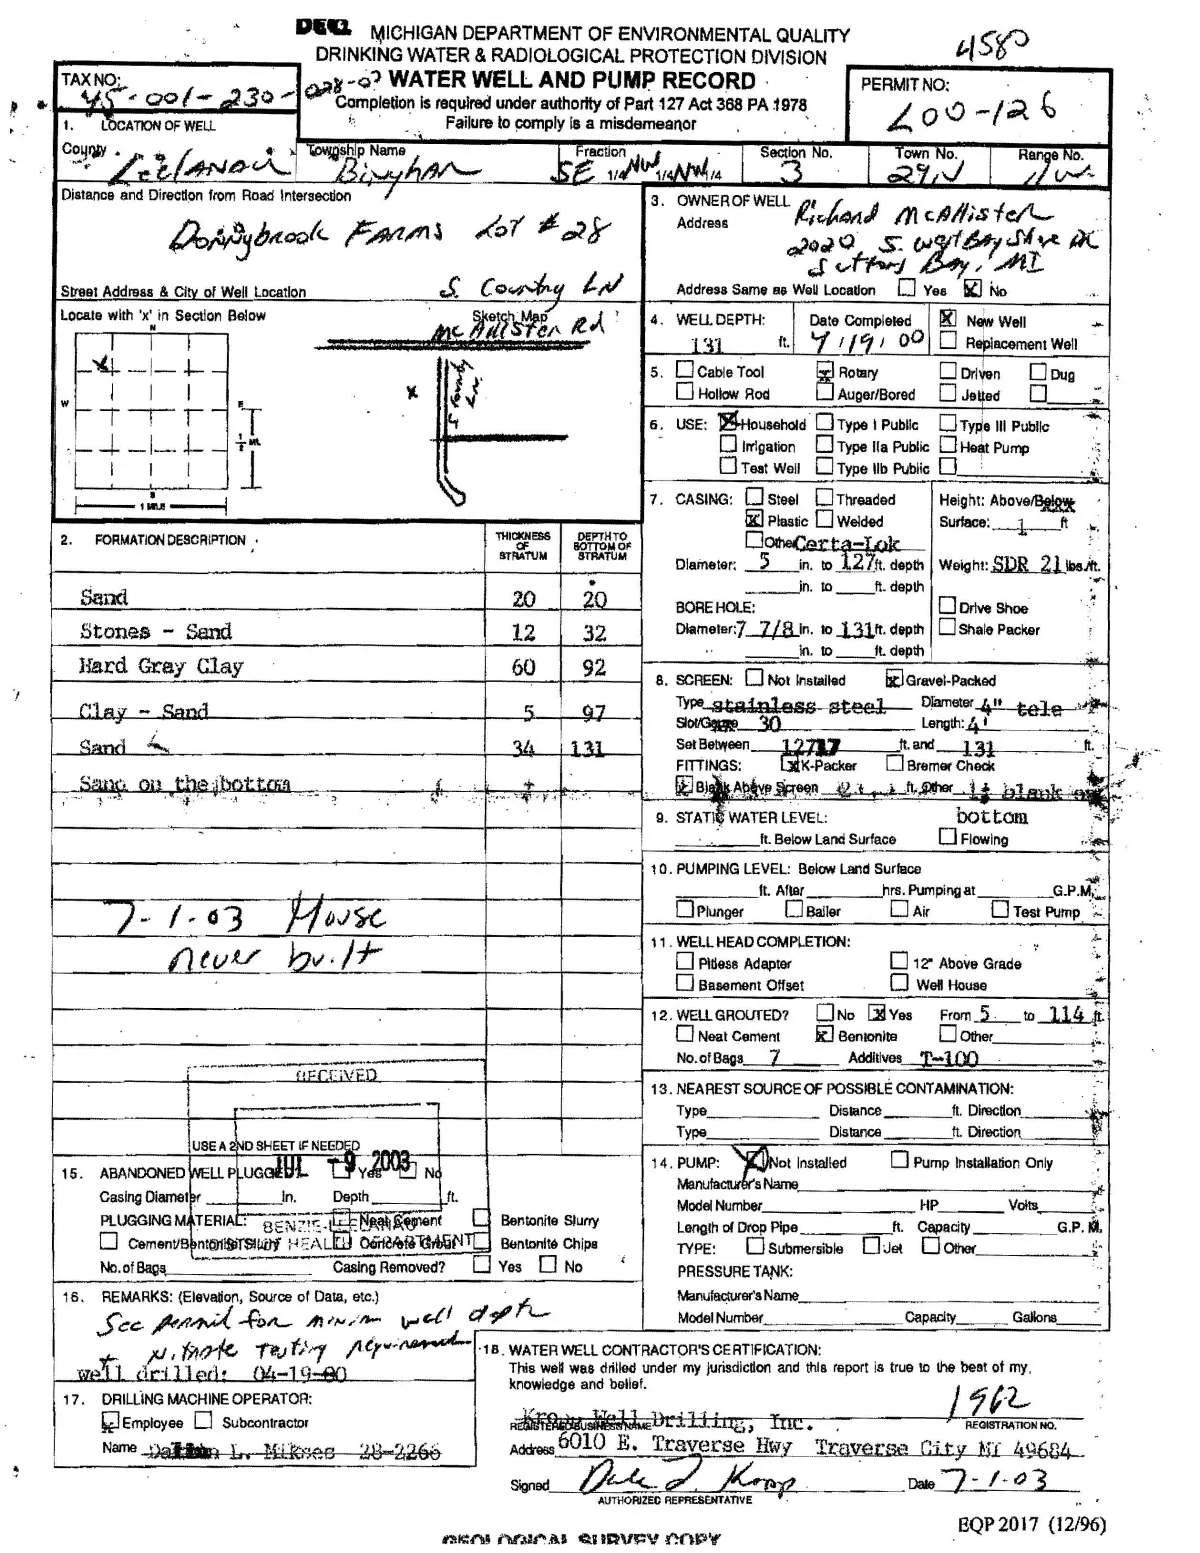 DEQ MICHIGAN DEPARTMENT OF ENVIRONMENTAL QUALITY
DRINKING WATER & RADIOLOGICAL PROTECTION DIVISION
4580
WATER WELL AND PUMP RECORD
Completion is required under authority of Part 127 Act 368 PA 1978
Failure to comply is a misdemeanor
TAX NO:
45-001-230-028-07
PERMIT NO:
L00-126
1. LOCATION OF WELL
County Leelanau
Township Name Bingham
Fraction SE 1/4 NW 1/4 NW 1/4
Section No. 3
Town No. 29N
Range No. 11W
Distance and Direction from Road Intersection
Donnybrook Farms Lot # 28
Street Address & City of Well Location
S. Country LN
Locate with 'x' in Section Below
N
X
W
E
S
1/2 MI.
1 MILE
Sketch Map
McAllister Rd
x
S County Ln.
2. FORMATION DESCRIPTION
THICKNESS OF STRATUM
DEPTH TO BOTTOM OF STRATUM
Sand 20 20
Stones - Sand 12 32
Hard Gray Clay 60 92
Clay - Sand 5 97
Sand 34 131
Sand on the bottom
7-1-03 House
never built
RECEIVED
USE A 2ND SHEET IF NEEDED
JUL -9 2003
BENZIE-LEELANAU
DISTRICT HEALTH DEPARTMENT
15. ABANDONED WELL PLUGGED? Yes No
Casing Diameter in. Depth ft.
PLUGGING MATERIAL: Neat Cement Bentonite Slurry
Cement/Bentonite Slurry Concrete Grout Bentonite Chips
No. of Bags Casing Removed? Yes No
16. REMARKS: (Elevation, Source of Data, etc.)
See permit for minim well depth
+ Nitrate Testing requirement
well drilled: 04-19-00
17. DRILLING MACHINE OPERATOR:
X Employee Subcontractor
Name L. Mikses 28-2266
3. OWNER OF WELL Richard McAllister
Address 2020 S. West Bay Shore DR
Suttons Bay, MI
Address Same as Well Location Yes X No
4. WELL DEPTH: 131 ft.
Date Completed 4/19/00
X New Well
Replacement Well
5. Cable Tool X Rotary Driven Dug
Hollow Rod Auger/Bored Jetted
6. USE: X Household Type I Public Type III Public
Irrigation Type IIa Public Heat Pump
Test Well Type IIb Public
7. CASING: Steel Threaded
X Plastic Welded
Other Certa-Lok
Diameter: 5 in. to 127 ft. depth
in. to ft. depth
Height: Above/Below
Surface: 1 ft
Weight: SDR 21 lbs/ft.
BORE HOLE:
Diameter: 7 7/8 in. to 131 ft. depth
in. to ft. depth
Drive Shoe
Shale Packer
8. SCREEN: Not Installed X Gravel-Packed
Type stainless steel Diameter 4" tele
Slot/Gauze 30 Length: 4'
Set Between 127 ft. and 131 ft.
FITTINGS: X K-Packer Bremer Check
X Blank Above Screen 2 ft. Other 1' blank on
bottom
9. STATIC WATER LEVEL:
ft. Below Land Surface Flowing
10. PUMPING LEVEL: Below Land Surface
ft. After hrs. Pumping at G.P.M.
Plunger Bailer Air Test Pump
11. WELL HEAD COMPLETION:
Pitless Adapter 12" Above Grade
Basement Offset Well House
12. WELL GROUTED? No X Yes From 5 to 114 ft.
Neat Cement X Bentonite Other
No. of Bags 7 Additives T-100
13. NEAREST SOURCE OF POSSIBLE CONTAMINATION:
Type Distance ft. Direction
Type Distance ft. Direction
14. PUMP: X Not Installed Pump Installation Only
Manufacturer's Name
Model Number HP Volts
Length of Drop Pipe ft. Capacity G.P.M.
TYPE: Submersible Jet Other
PRESSURE TANK:
Manufacturer's Name
Model Number Capacity Gallons
18. WATER WELL CONTRACTOR'S CERTIFICATION:
This well was drilled under my jurisdiction and this report is true to the best of my
knowledge and belief.
Kropp Well Drilling, Inc. 1962
REGISTERED BUSINESS NAME REGISTRATION NO.
Address 6010 E. Traverse Hwy Traverse City MI 49684
Signed Dale J Kropp Date 7-1-03
AUTHORIZED REPRESENTATIVE
EQP 2017 (12/96)
GEOLOGICAL SURVEY COPY